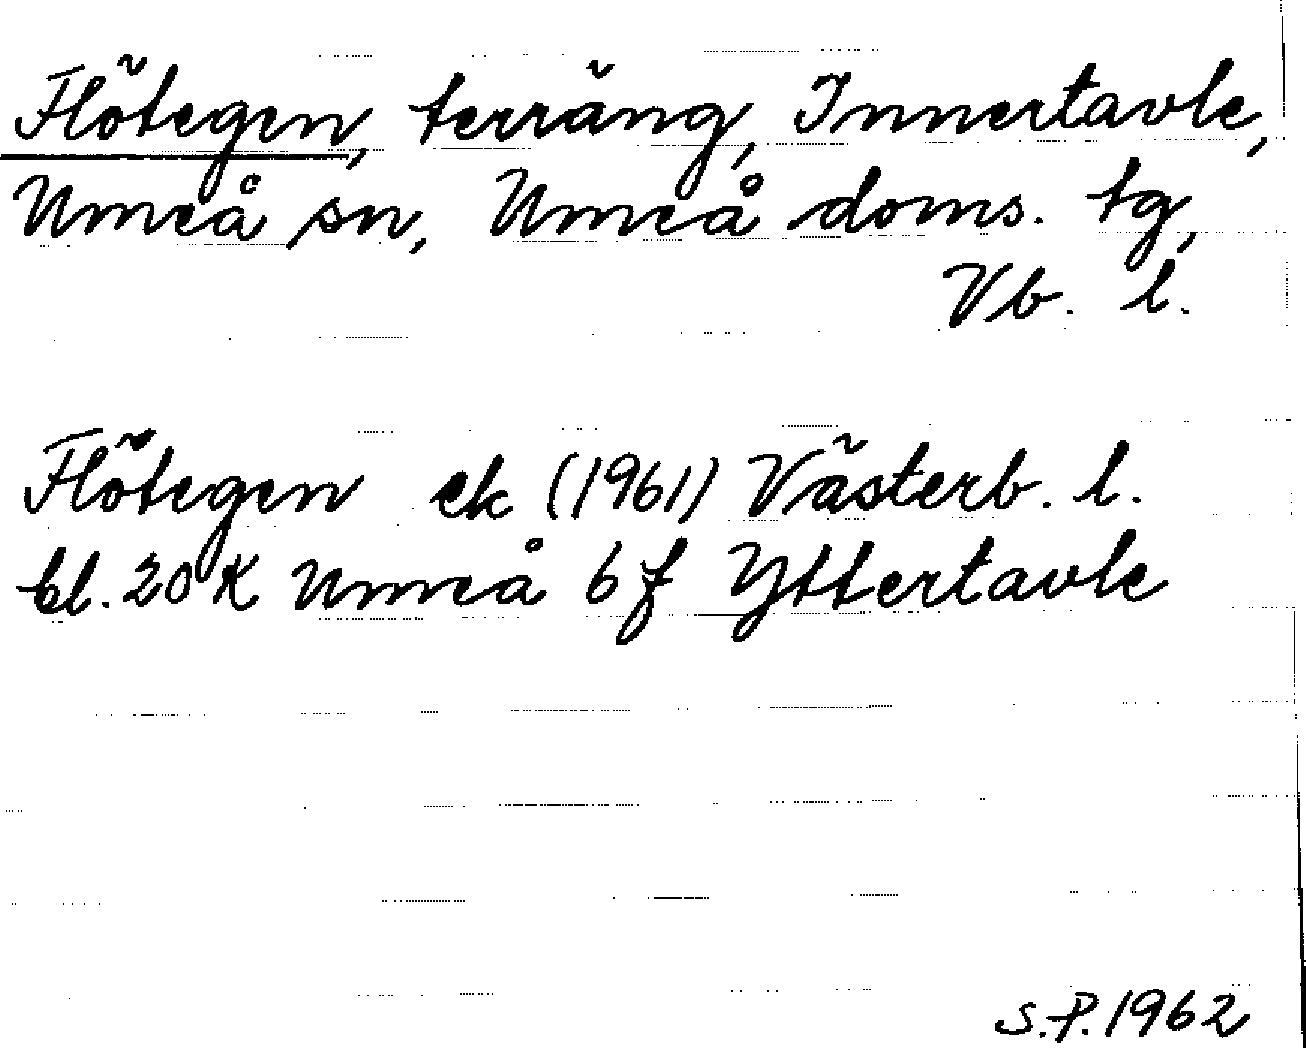 Flötegen, terräng, Innertavle,
Umeå sn, Umeå doms. tg,
Vb. l.
Flötegen ek (1961) Västerb. l.
bl. 20 K Umeå 6 f Yttertavle
S.P. 1962